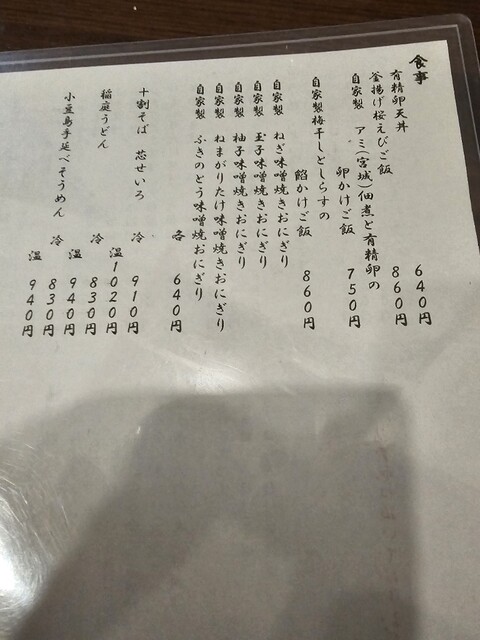 食事
有精卵天丼 640円
釜揚げ桜えびご飯 860円
自家製 アミ(宮城)佃煮と有精卵の
卵かけご飯 750円
自家製梅干しとしらすの
餡かけご飯 860円
自家製 ねぎ味噌焼きおにぎり
自家製 玉子味噌焼きおにぎり
自家製 柚子味噌焼きおにぎり
自家製 ねまがりたけ味噌焼きおにぎり
自家製 ふきのとう味噌焼おにぎり
各 640円
十割そば 芯せいろ 冷 910円
温 1020円
稲庭うどん 冷 830円
温 940円
小豆島手延べそうめん 冷 830円
温 940円